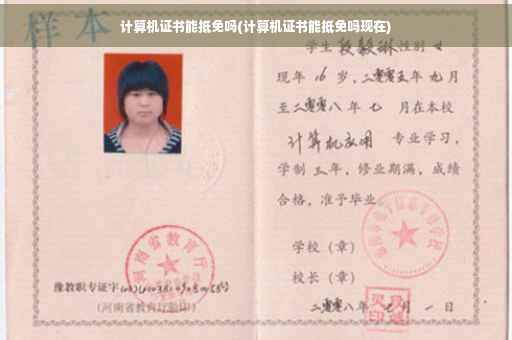 计算机证书能抵免吗(计算机证书能抵免吗现在)
样本
学生 段毅琳 性别 女
现年 16 岁，二零零五年 九 月
至二零零八年 七 月在本校
计算机应用 专业学习，
学制 三 年，修业期满，成绩
合格，准予毕业
学校（章）
校长（章）
二零零八年 月 一 日
河南省教育厅
豫教职专证字
(河南省教育厅验印)